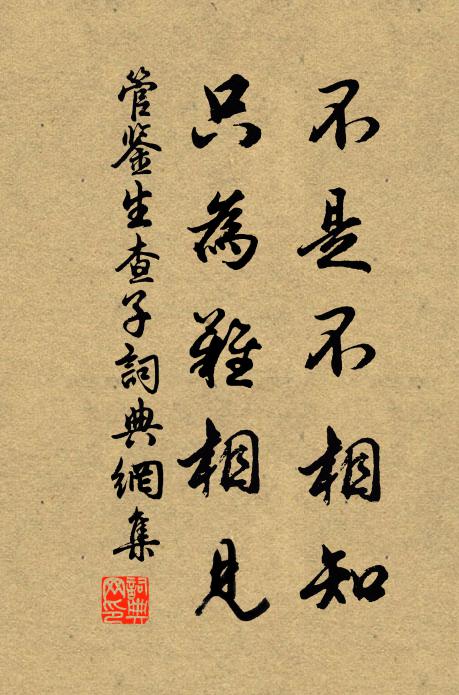 不是不相知
只為難相見
管鉴生查子詞典網集
詞典網印